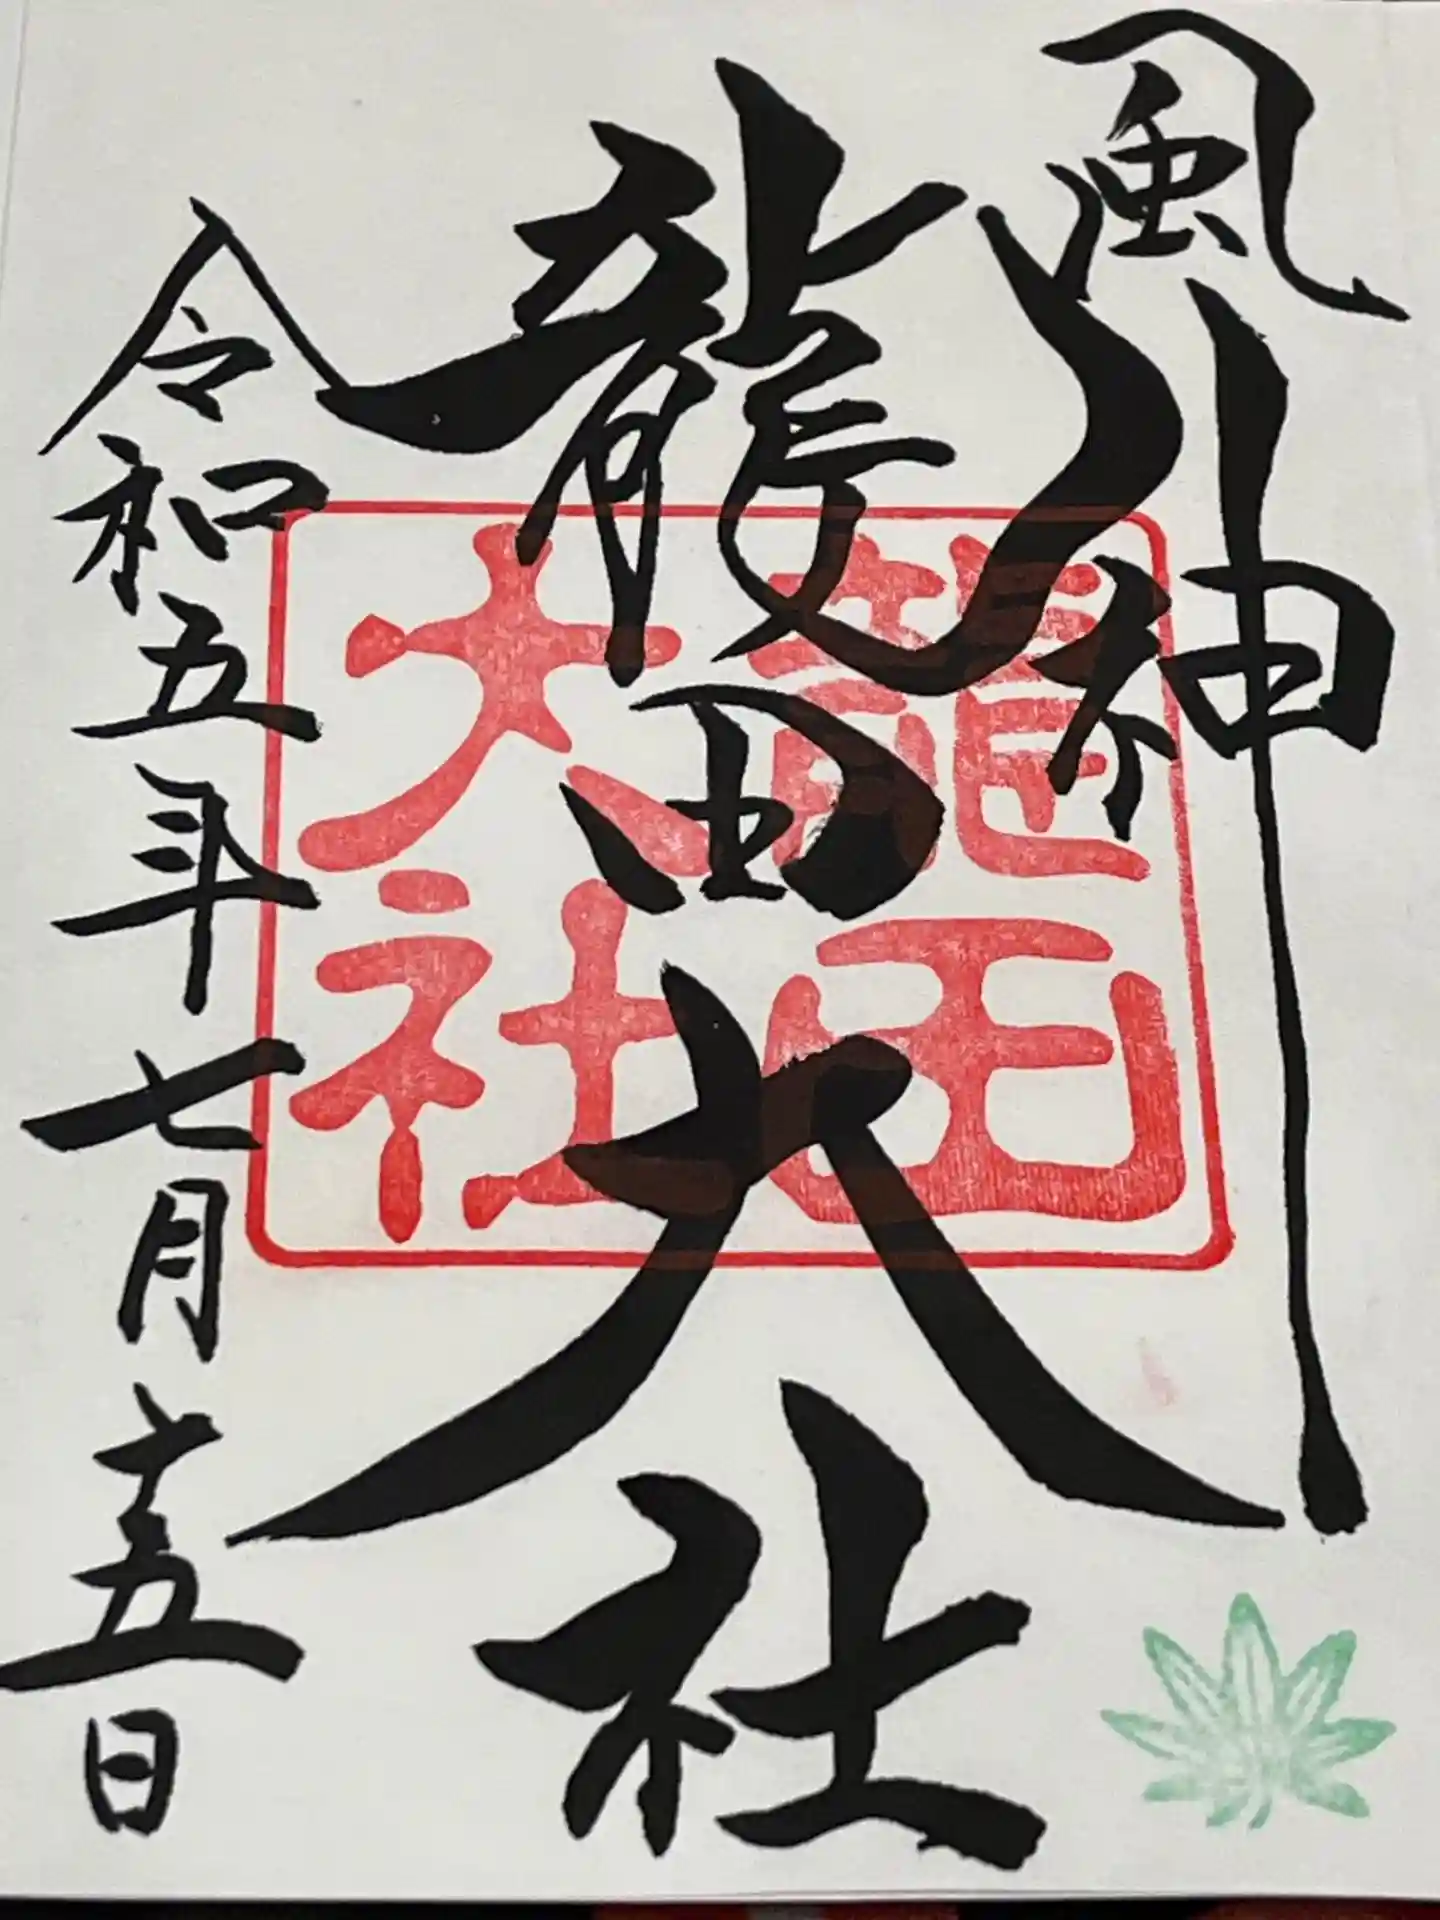 風神
龍田大社
龍田
大社
令和五年七月十五日